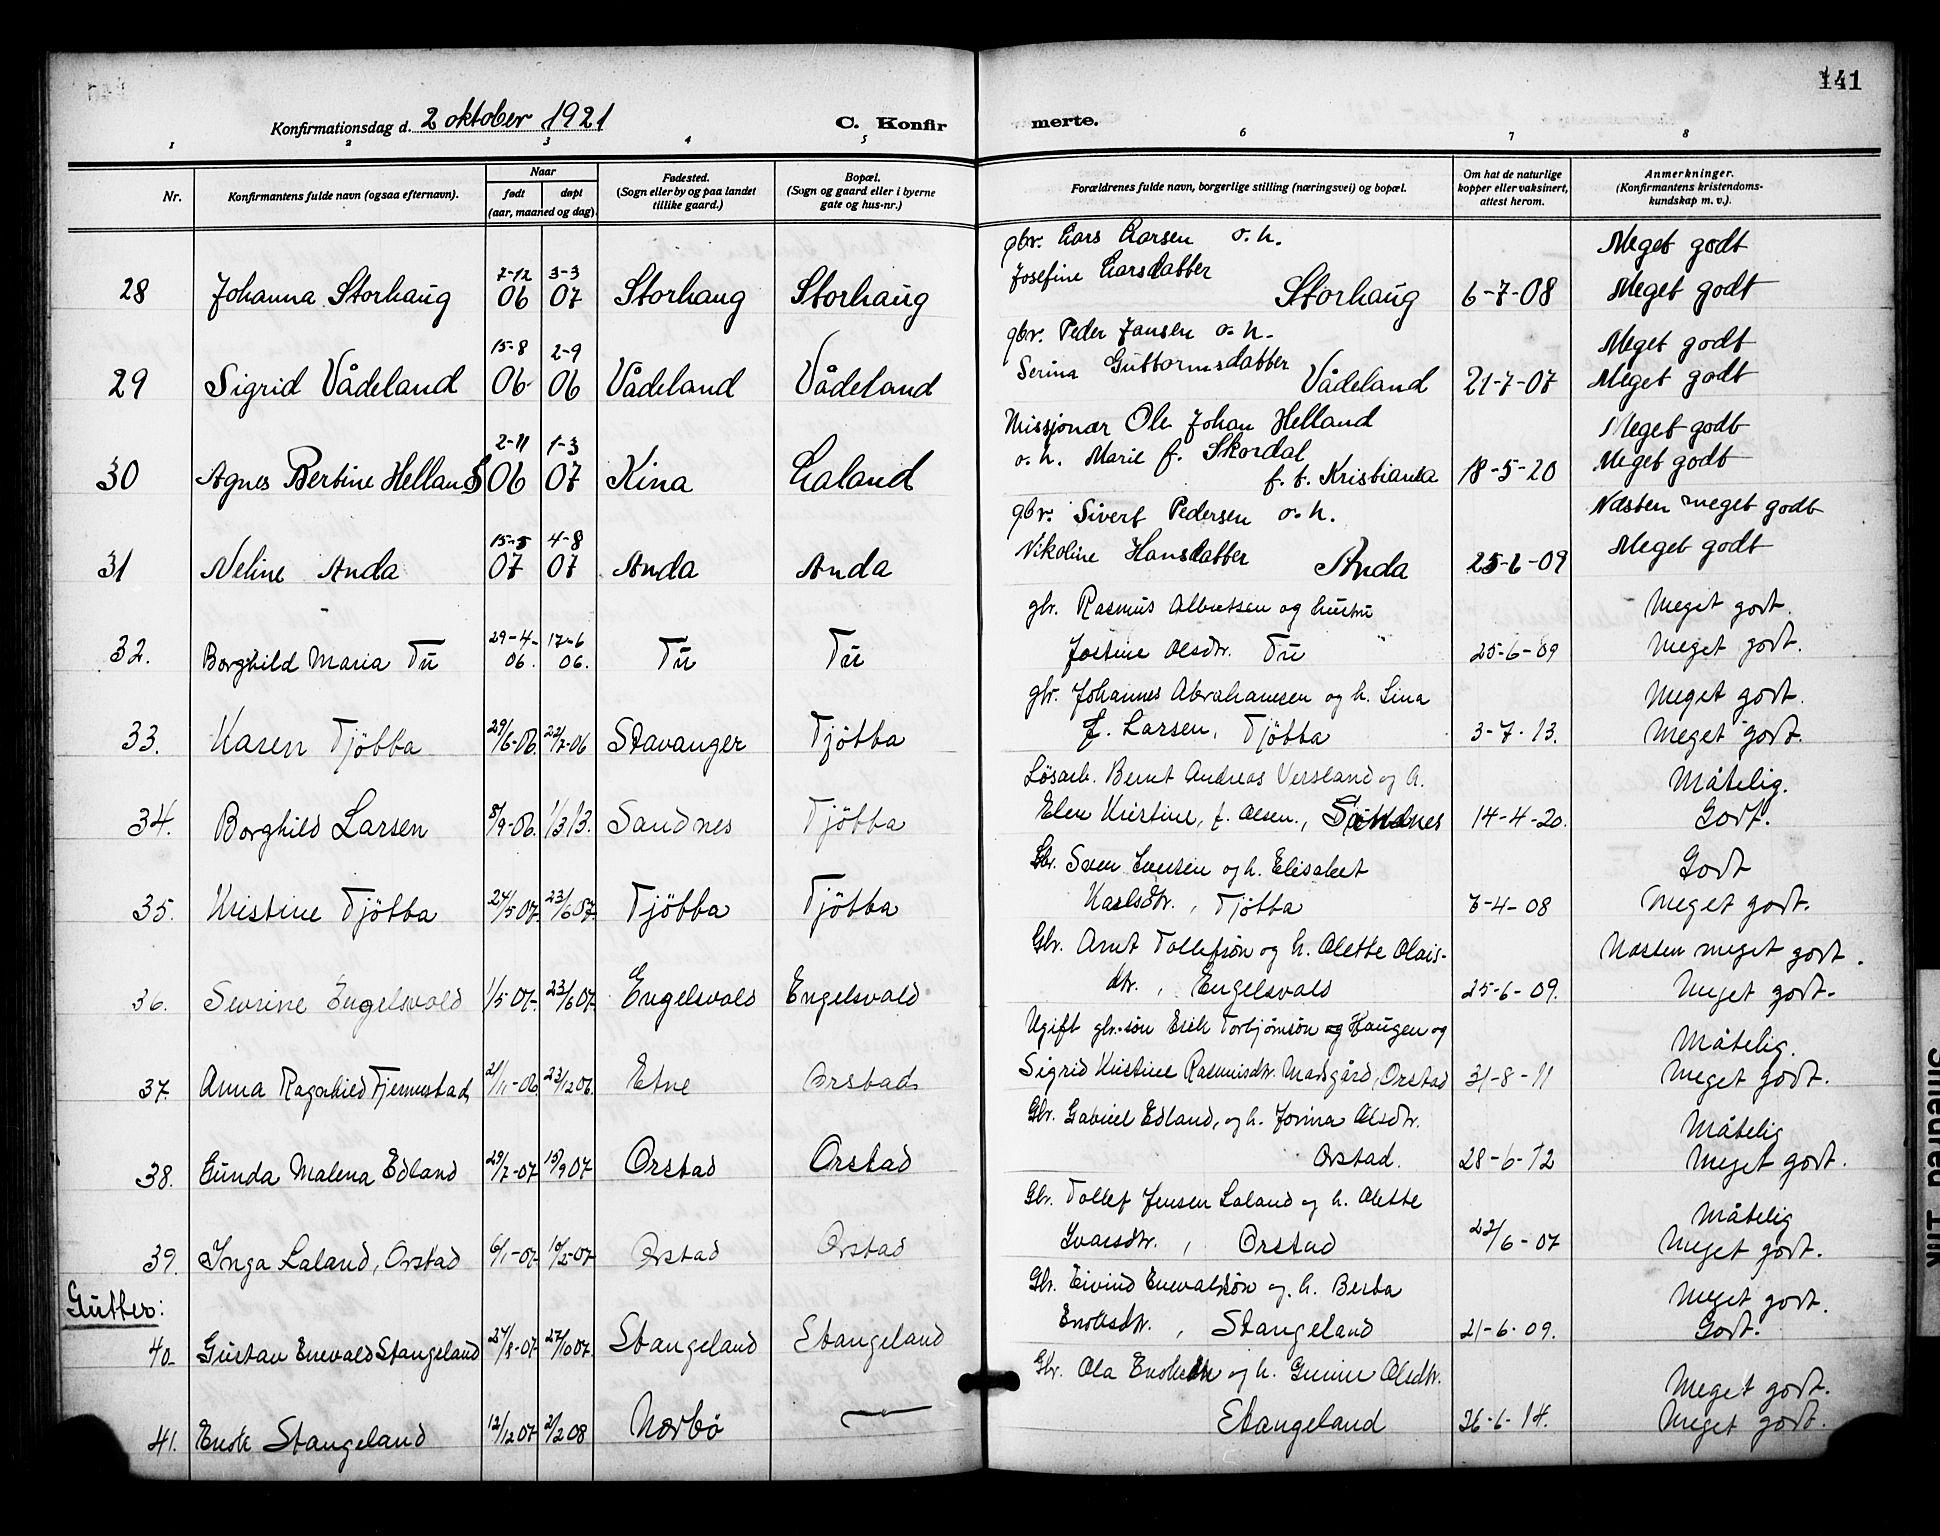 141
Konfirmationsdag d. 2 oktober 1921 C. Konfir merte.
1 2 3 4 5 6 7 8
Nr. Konfirmantens fulde navn (ogsaa efternavn). Naar født døpt (aar, maaned og dag). Fødested. (Sogn eller by og paa landet tillike gaard.) Bopæl. (Sogn og gaard eller i byerne gate og hus-nr.) Forældrenes fulde navn, borgerlige stilling (næringsvei) og bopæl. Om hat de naturlige kopper eller vaksinert, attest herom. Anmerkninger. (Konfirmantens kristendoms- kundskap m. v.).
gbr. Lars Larsen o. h. Meget godt
7-12 3-3 Josefine Larsdatter
28 Johanna Storhaug 06 07 Storhaug Storhaug Storhaug 6-7-08 Meget godt
gbr. Peder Jansen o. h. Meget godt
15-8 2-9 Serina Guttormsdatter
29 Sigrid Vådeland 06 06 Vådeland Vådeland Vådeland 21-7-07 Meget godt
Missjonær Ole Johan Helland Meget godt
2-11 1-3 o. h. Marie f. Skordal
30 Agnes Bertine Helland 06 07 Kina Laland f. t. Kristiania 18-5-20 Meget godt
gbr. Sivert Pedersen o. h. Næsten meget godt
15-5 4-8 Nikoline Hansdatter
31 Neline Anda 07 07 Anda Anda Anda 25-6-09 Meget godt
gbr. Rasmus Albretsen og hustru Meget godt.
29-4- 17-6
32. Borghild Maria Tu 06. 06. Tu Tu Jostine Olsdtr. Tu 25-6-09 Meget godt.
gbr. Johannes Abrahamsen og h. Lina Meget godt.
33. Karen Tjøtta 29/6-06. 22/7-06 Stavanger Tjøtta f. Larsen, Tjøtta 3-7-13. Meget godt.
Løsarb. Bernt Andreas Versland og h. Måtelig.
34. Borghild Larsen 8/9-06. 1/3 13. Sandnes Tjøtta Elen Kristine, f. Olsen., Sandnes 14-4-20. Godt.
Gbr. Sven Iversen og h. Elisabet Godt
35. Kristine Tjøtta 24/5 07. 23/6 07. Tjøtta Tjøtta Karlsdtr., Tjøtta 7-4-08 Meget godt.
Gbr. Arnt Tollefsøn og h. Olette Olais- Næsten meget godt.
36. Sevrine Engelsvold 1/5 07. 23/6 07. Engelsvold Engelsvold dtr., Engelsvold 25-6-09. Meget godt.
Ugift gbr.-søn Erik Torbjørnsøn Haugen og Måtelig.
37. Anna Ragnhild Fjermestad 21/11-06 23/12 06. Etne Orstad Sigrid Kristine Rasmusdtr. Marsgård, Orstad 31-8-11 Meget godt.
Gbr. Gabriel Edland, og h. Jorina Olsdtr. Måtelig
38. Gunda Malena Edland 29/7-07 15/9 07 Orstad Orstad Orstad. 28-6-12 Meget godt.
Gbr. Tollef Jensen Laland og h. Olette Måtelig
39. Inga Laland, Orstad 6/1-07. 10/2-07 Orstad Orstad Ivarsdtr., Orstad 22/6-07 Meget godt.
Gutter:
Gbr. Eivind Enevaldsøn og h. Berta Meget godt.
40. Gustav Enevald Stangeland 24/8-07. 27/10 07. Stangeland Stangeland Enoksdtr., Stangeland 21-6-09. Godt.
Gbr. Ola Enoksen og h. Gunne Olsdtr. Meget godt.
41. Enok Stangeland 12/12 07 2/2 08 Nærbø Stangeland 26-6-14. Meget godt.